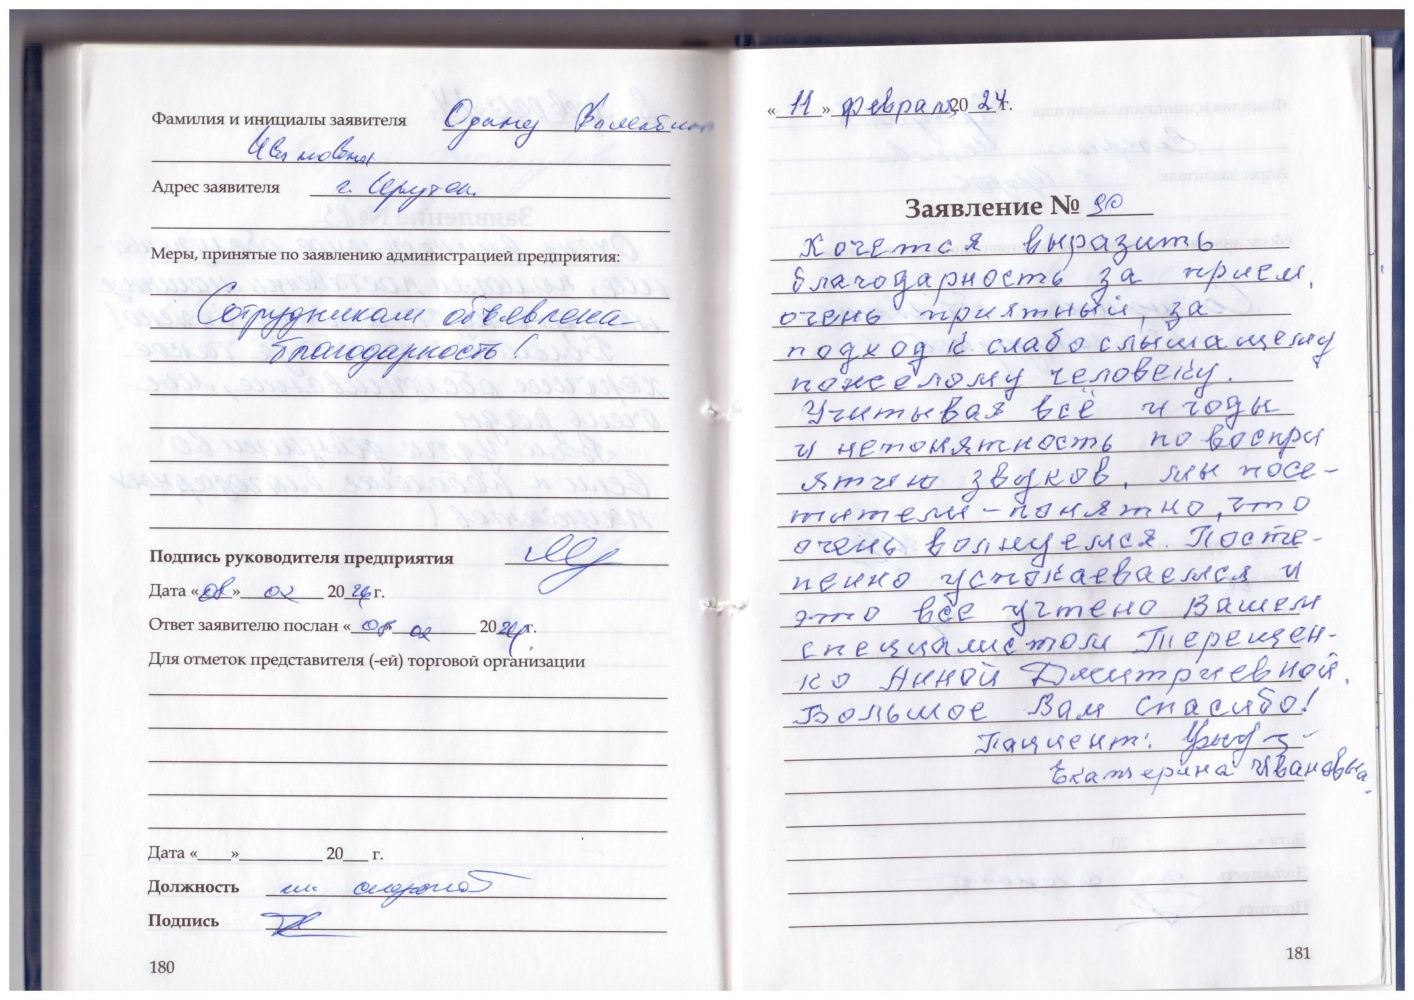 Фамилия и инициалы заявителя
Адрес заявителя г.
Меры, принятые по заявлению администрацией предприятия:
Сотрудникам объявлена
благодарность!
Подпись руководителя предприятия
Дата « » 02 20 24 г.
Ответ заявителю послан « » 02 20 24 г.
Для отметок представителя (-ей) торговой организации
Дата «___»__________ 20___ г.
Должность
Подпись
180
« 11 » февраля 20 24 г.
Заявление № 90
Хочется выразить
благодарность за прием,
очень приятный, за
подход к слабослышащему
пожелому человеку.
Учитывая всё и годы
и непонятность по воспри
ятию звуков, мы посе-
тители - понятно, что
очень волнуемся. Посте-
пенно успокаеваемся и
это все учтено Вашем
специалистом Терещен-
ко Анной Дмитриевной.
Большое Вам спасибо!
Пациент:
Екатерина Ивановна.
181